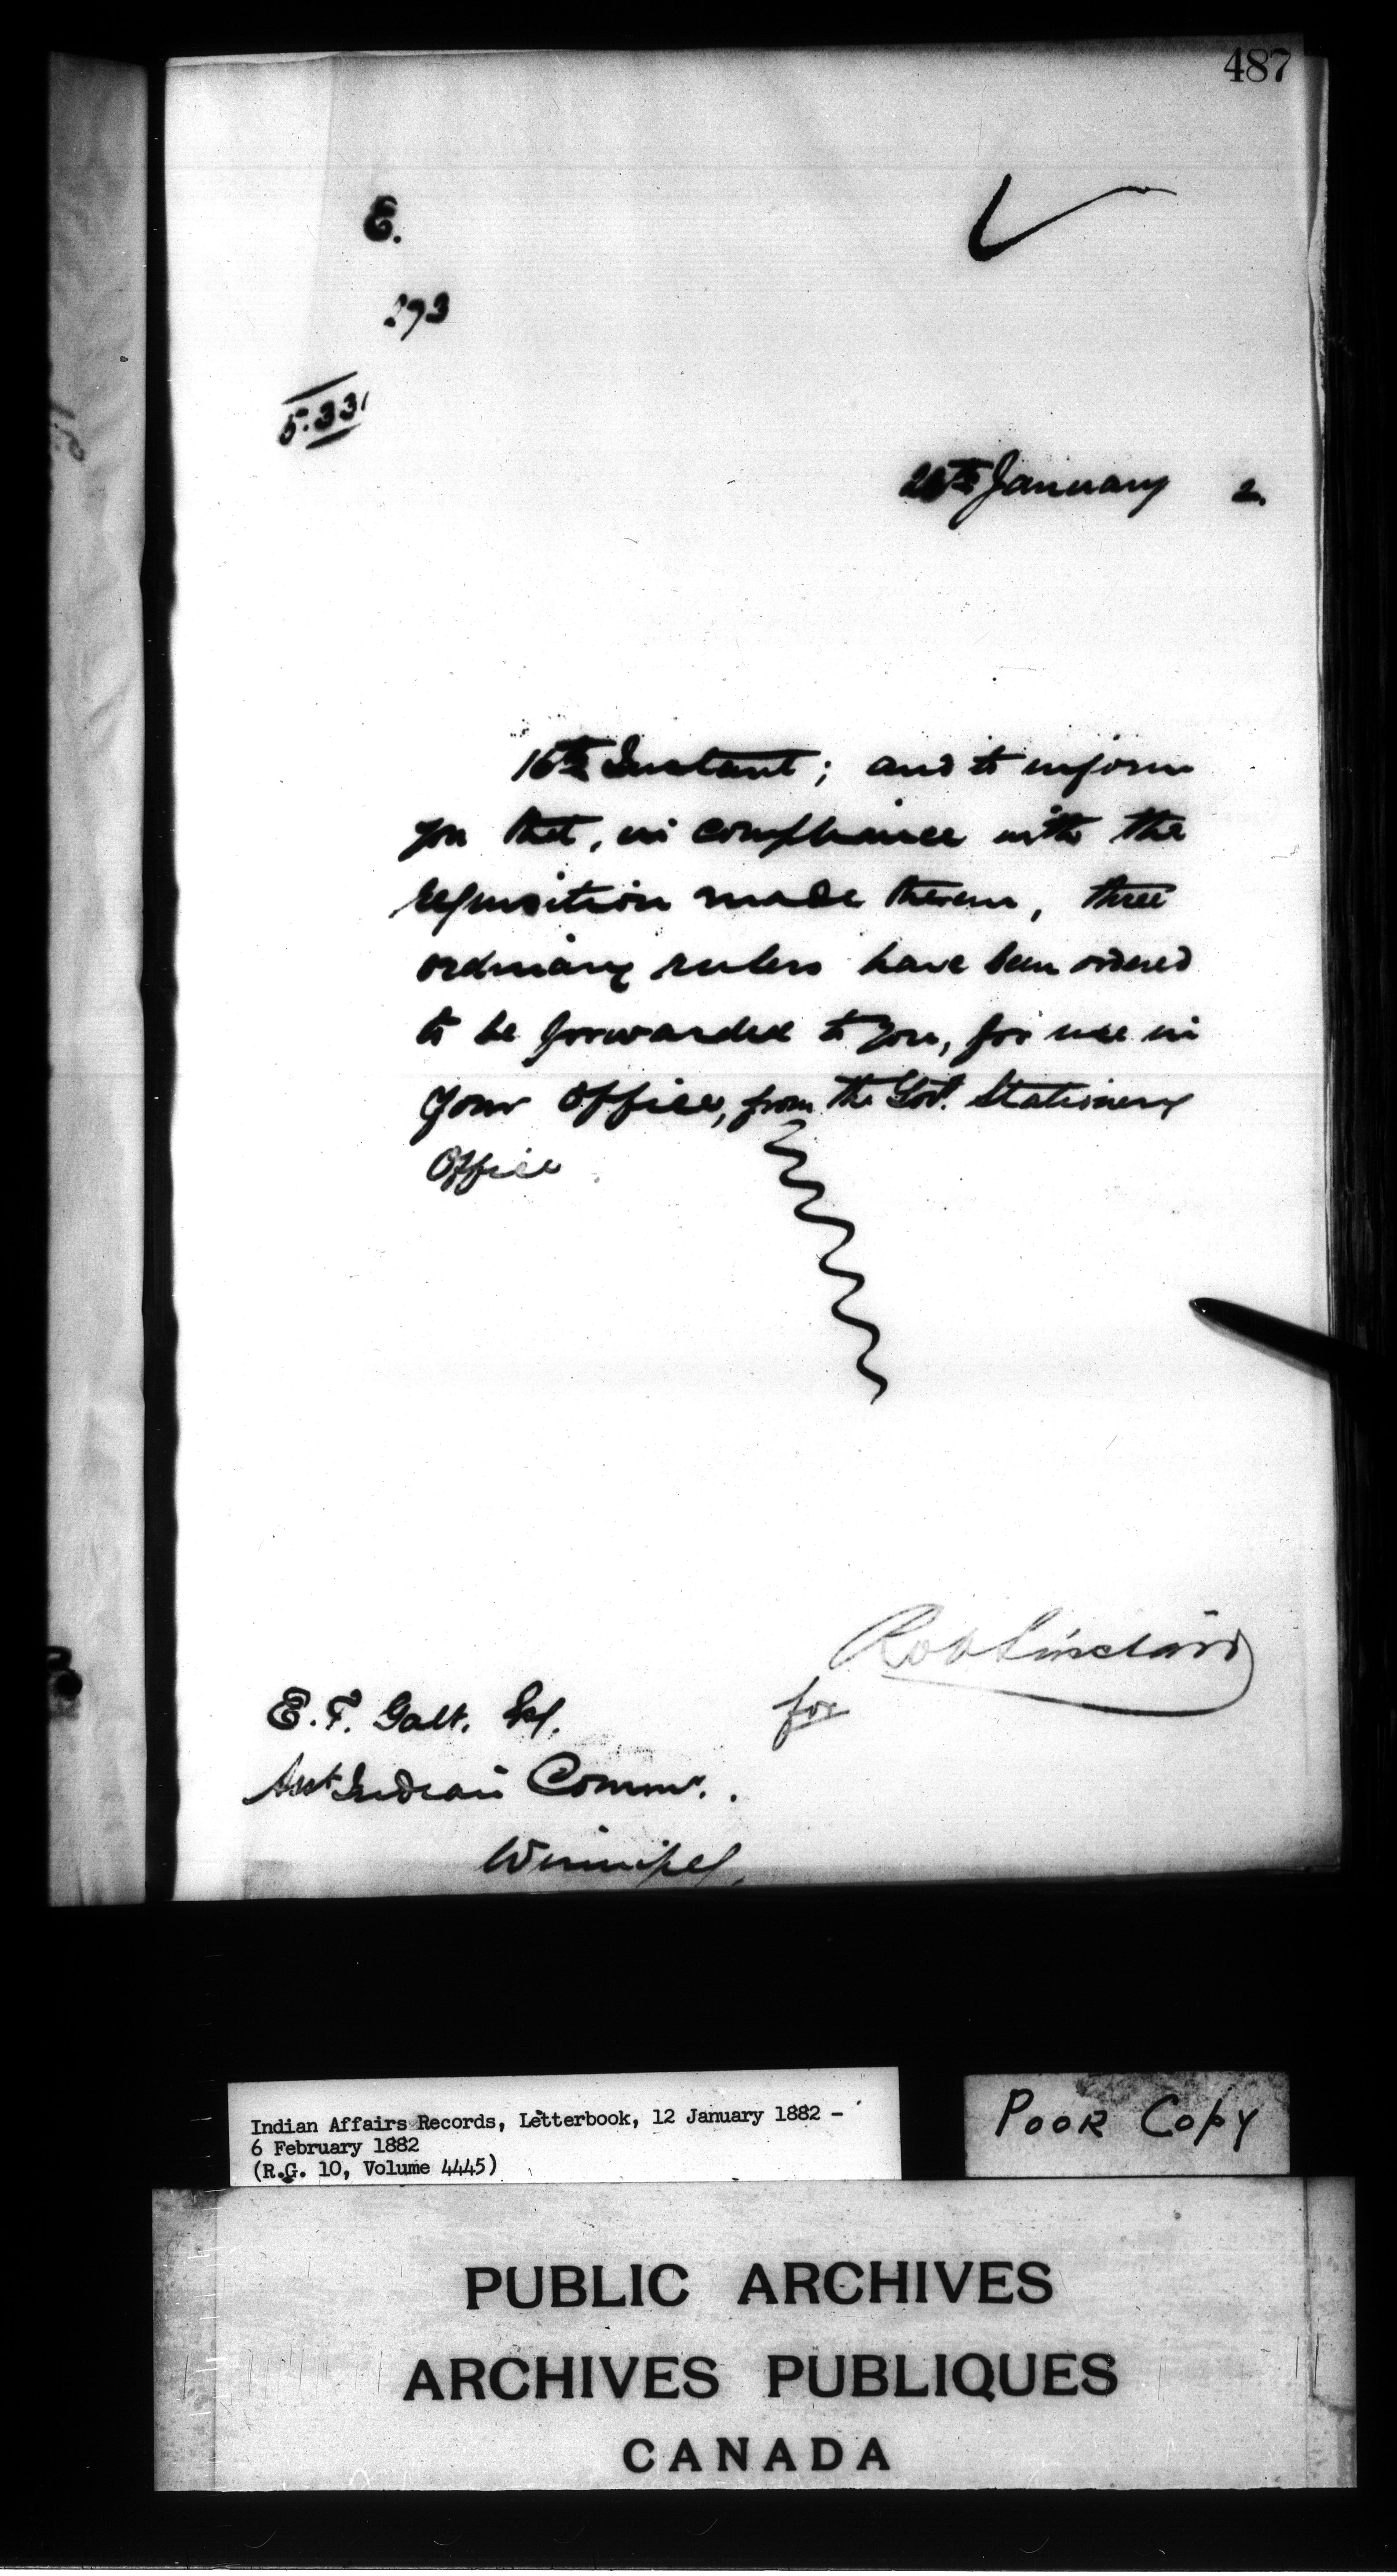 487
E.
293
5.331
January 2.
16th Instant; and to inform
you that, in compliance with the
requisition made therein, three
ordinary rulers have been ordered
to be forwarded to you, for use in
your Office, from the Govt. Stationery
Office
Rob Sinclair
for
E. T. Galt. Esq.
Asst Indian Commr.
Winnipeg.
Indian Affairs Records, Letterbook, 12 January 1882 -
6 February 1882
(R.G. 10, Volume 4445)
POOR COPY
PUBLIC ARCHIVES
ARCHIVES PUBLIQUES
CANADA